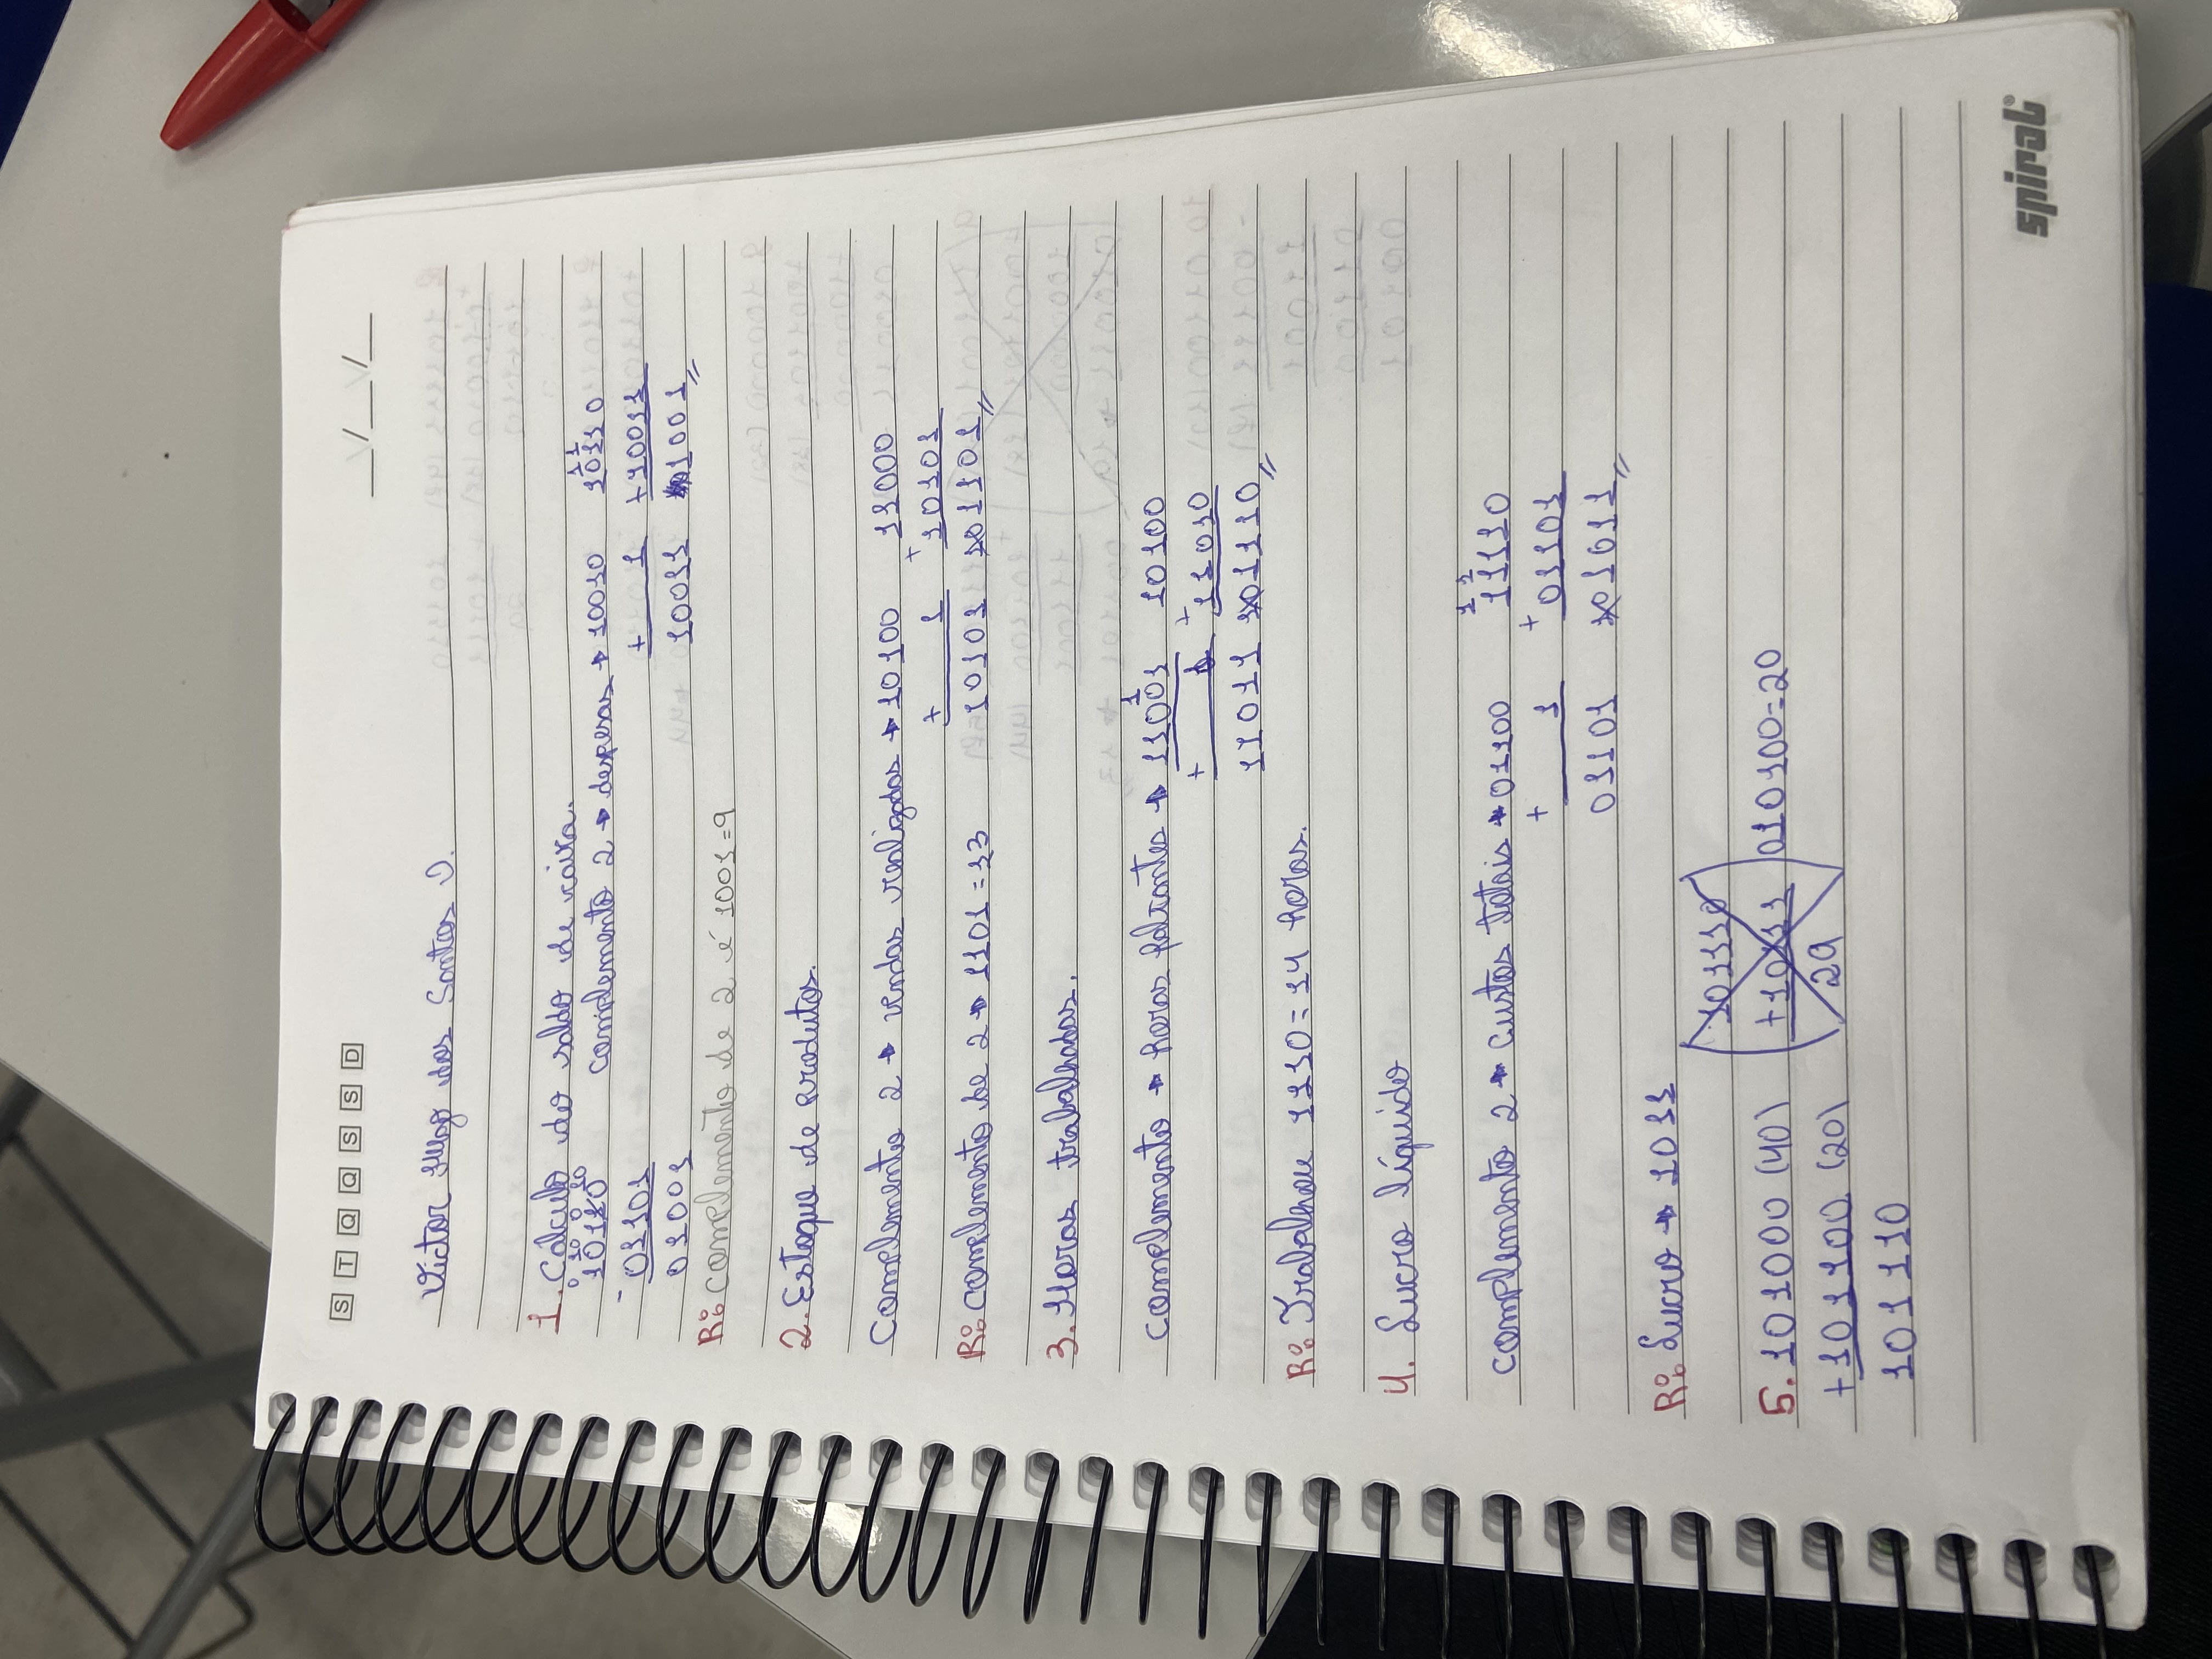 S T Q Q S S D
__/__/__
Victor Hugo dos Santos O.
1. Cálculo do saldo de caixa.
0 10 0 10 1 1
10110 complemento 2 → despesas → 10010 10110
- 01101 + 1 +10011
01001 10011 01001
R: complemento de 2 é 1001=9
2. Estoque de produtos.
Complemento 2 → vendas realizadas → 10100 11000
+ 1 + 10101
R: complemento de 2 → 1101 = 13 10101 101101
3. Horas trabalhadas.
1
complemento → horas faltantes → 11001 10100
+ 1 + 11010
11011 101110
R: Trabalhou 1110 = 14 horas.
4. Lucro líquido
1 1
complemento 2 → custos totais → 01100 11110
+ 1 + 01101
01101 101011
R: Lucro → 1011
101110
5. 101000 (40) +10111 010100=20
+101100 (20) 29
101110
spiral®